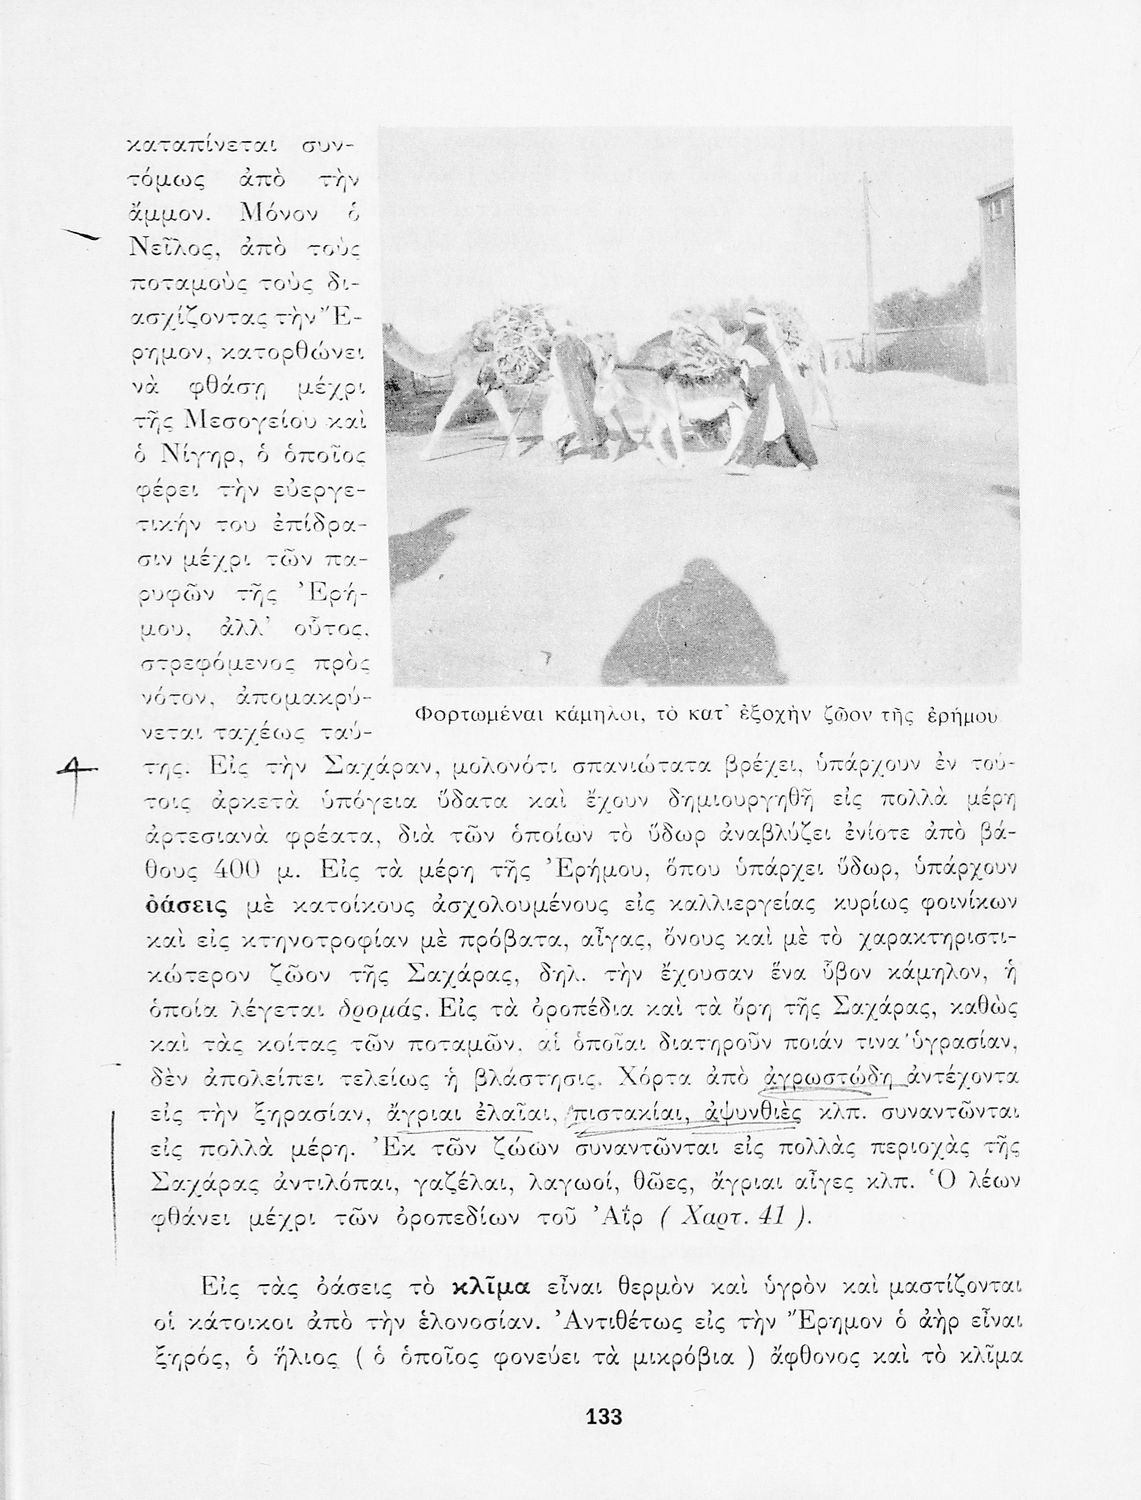 καταπίνεται συν-
τόμως ἀπὸ τὴν
ἄμμον. Μόνον ὁ
Νεῖλος, ἀπὸ τοὺς
ποταμοὺς τοὺς δι-
ασχίζοντας τὴν Ἔ-
ρημον, κατορθώνει
νὰ φθάσῃ μέχρι
τῆς Μεσογείου καὶ
ὁ Νίγηρ, ὁ ὁποῖος
φέρει τὴν εὐεργε-
τικήν του ἐπίδρα-
σιν μέχρι τῶν πα-
ρυφῶν τῆς Ἐρή-
μου, ἀλλ' οὗτος,
στρεφόμενος πρὸς
νότον, ἀπομακρύ-
νεται ταχέως ταύ-
Φορτωμέναι κάμηλοι, τὸ κατ' ἐξοχὴν ζῶον τῆς ἐρήμου
της. Εἰς τὴν Σαχάραν, μολονότι σπανιώτατα βρέχει, ὑπάρχουν ἐν τού-
τοις ἀρκετὰ ὑπόγεια ὕδατα καὶ ἔχουν δημιουργηθῆ εἰς πολλὰ μέρη
ἀρτεσιανὰ φρέατα, διὰ τῶν ὁποίων τὸ ὕδωρ ἀναβλύζει ἐνίοτε ἀπὸ βά-
θους 400 μ. Εἰς τὰ μέρη τῆς Ἐρήμου, ὅπου ὑπάρχει ὕδωρ, ὑπάρχουν
ὀάσεις μὲ κατοίκους ἀσχολουμένους εἰς καλλιεργείας κυρίως φοινίκων
καὶ εἰς κτηνοτροφίαν μὲ πρόβατα, αἶγας, ὄνους καὶ μὲ τὸ χαρακτηριστι-
κώτερον ζῶον τῆς Σαχάρας, δηλ. τὴν ἔχουσαν ἕνα ὗβον κάμηλον, ἡ
ὁποία λέγεται δρομάς. Εἰς τὰ ὀροπέδια καὶ τὰ ὄρη τῆς Σαχάρας, καθὼς
καὶ τὰς κοίτας τῶν ποταμῶν, αἱ ὁποῖαι διατηροῦν ποιάν τινα ὑγρασίαν,
δὲν ἀπολείπει τελείως ἡ βλάστησις. Χόρτα ἀπὸ ἀγρωστώδη ἀντέχοντα
εἰς τὴν ξηρασίαν, ἄγριαι ἐλαῖαι, πιστακίαι, ἀψυνθιὲς κλπ. συναντῶνται
εἰς πολλὰ μέρη. Ἐκ τῶν ζώων συναντῶνται εἰς πολλὰς περιοχὰς τῆς
Σαχάρας ἀντιλόπαι, γαζέλαι, λαγωοί, θῶες, ἄγριαι αἶγες κλπ. Ὁ λέων
φθάνει μέχρι τῶν ὀροπεδίων τοῦ Ἀΐρ ( Χαρτ. 41 ).
Εἰς τὰς ὀάσεις τὸ κλῖμα εἶναι θερμὸν καὶ ὑγρὸν καὶ μαστίζονται
οἱ κάτοικοι ἀπὸ τὴν ἑλονοσίαν. Ἀντιθέτως εἰς τὴν Ἔρημον ὁ ἀὴρ εἶναι
ξηρός, ὁ ἥλιος ( ὁ ὁποῖος φονεύει τὰ μικρόβια ) ἄφθονος καὶ τὸ κλῖμα
133